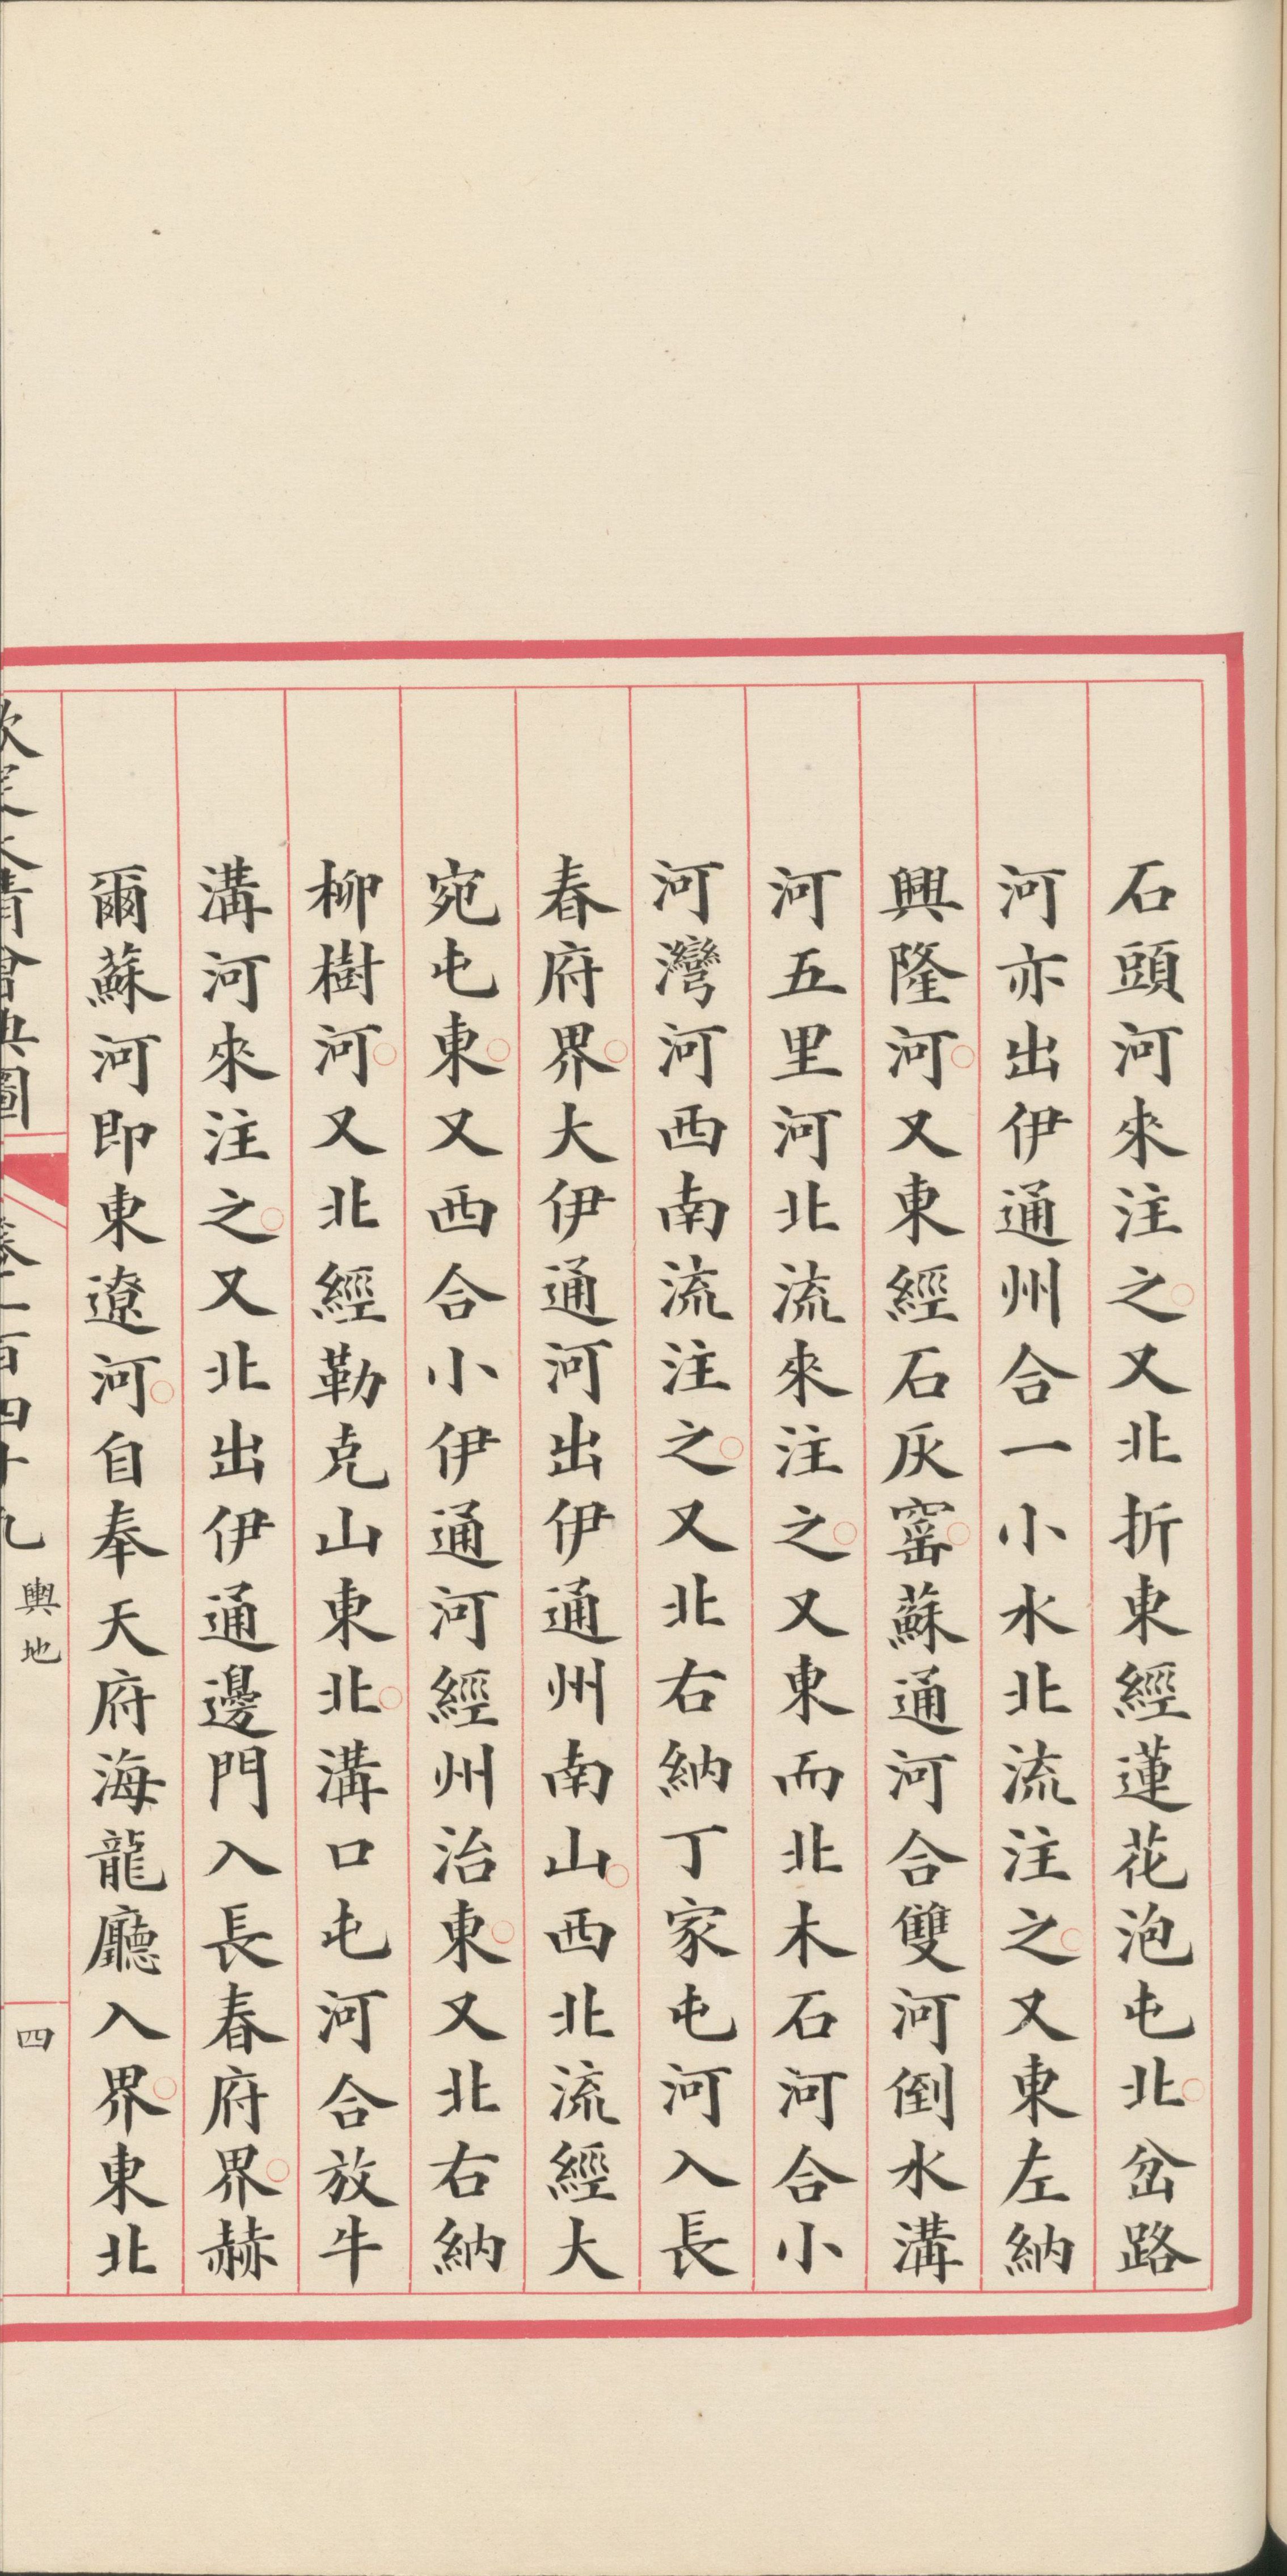 石頭河來注之又北折東經蓮花泡屯北岔路
河亦出伊通州合一小水北流注之又東左納
興隆河又東經石灰窰蘇通河合雙河倒水溝
河五里河北流來注之又東而北木石河合小
河灣河西南流注之又北右納丁家屯河入長
春府界大伊通河出伊通州南山西北流經大
宛屯東又西合小伊通河經州治東又北右納
柳樹河又北經勒克山東北溝口屯河合放牛
溝河來注之又北出伊通邊門入長春府界赫
爾蘇河即東遼河自奉天府海龍廳入界東北
清會典圖
百四十九 輿地
四